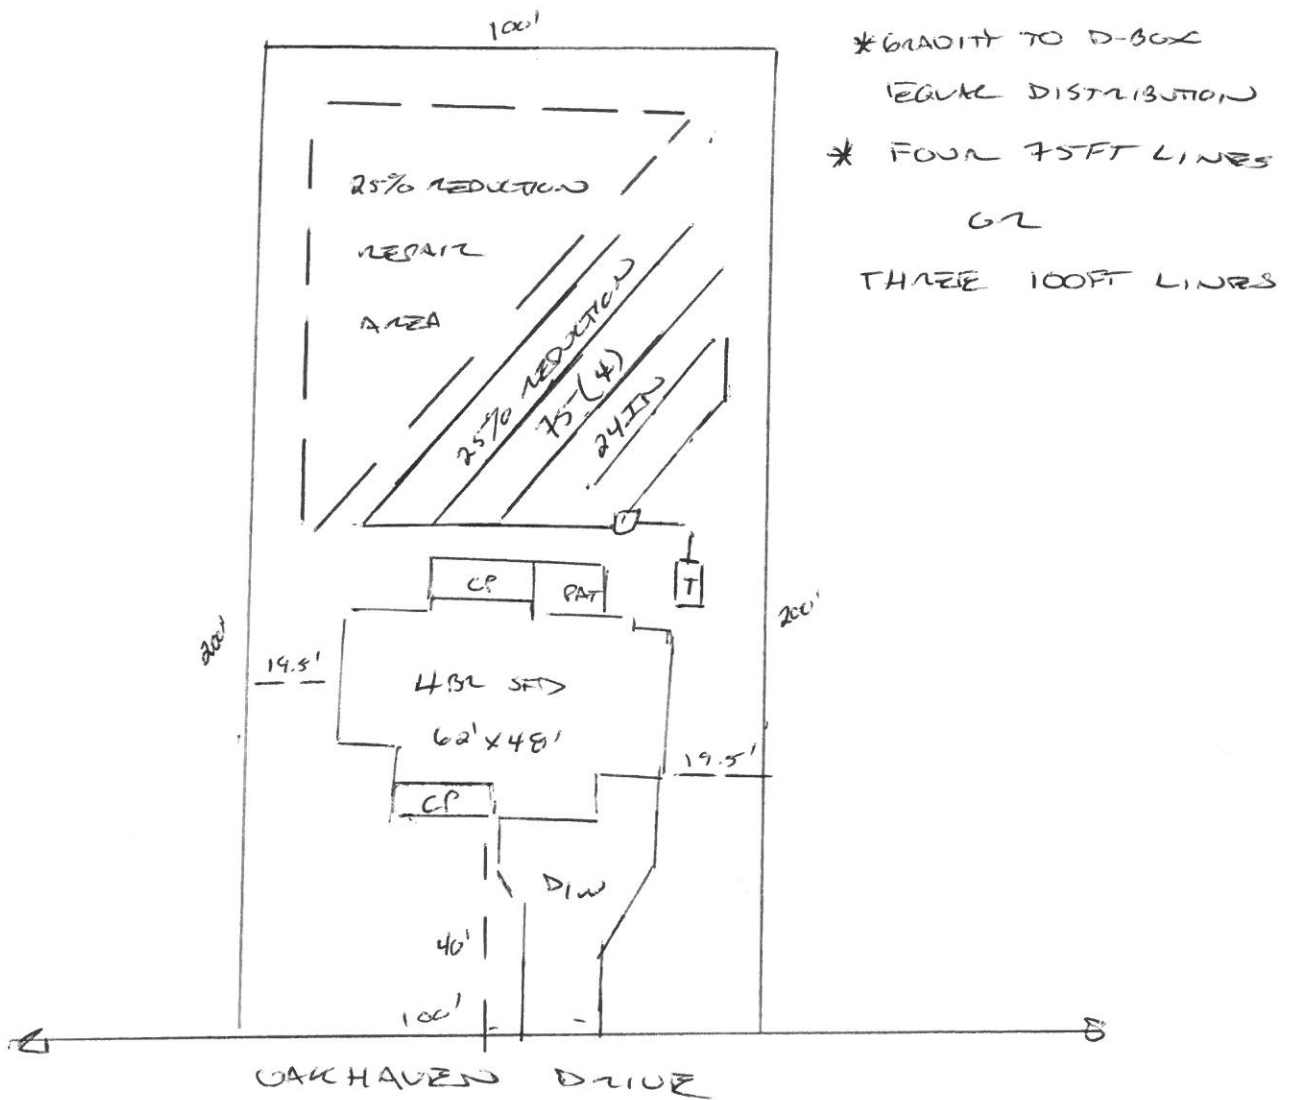 100'
* GRAVITY TO D-BOX
EQUAL DISTRIBUTION
* FOUR 75FT LINES
OR
THREE 100FT LINES
25% REDUCTION
REPAIR
AREA
25% REDUCTION
75 (4)
24IN
CP
PAT
T
200'
200'
19.5'
4BR SFD
62' X 48'
19.5'
CP
D/W
40'
100'
OAKHAVEN DRIVE